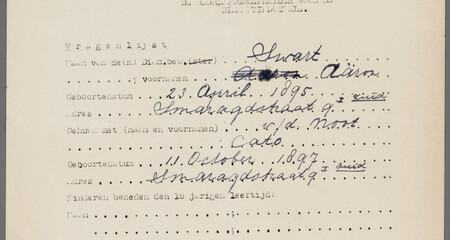 Vragenlijst
Naam van de(n) Diam.bew.(ster) Swart
; voornamen Aäron Aäron
Geboortedatum 23 April 1895
Adres Smaragdstraat 9 I zuid
Gehuwd met (naam en voornamen) v/d Noot
Cato
Geboortedatum 11 October 1897
Adres Smaragdstraat 9 I zuid
Kinderen beneden den 16 jarigen leeftijd:
Naam ;